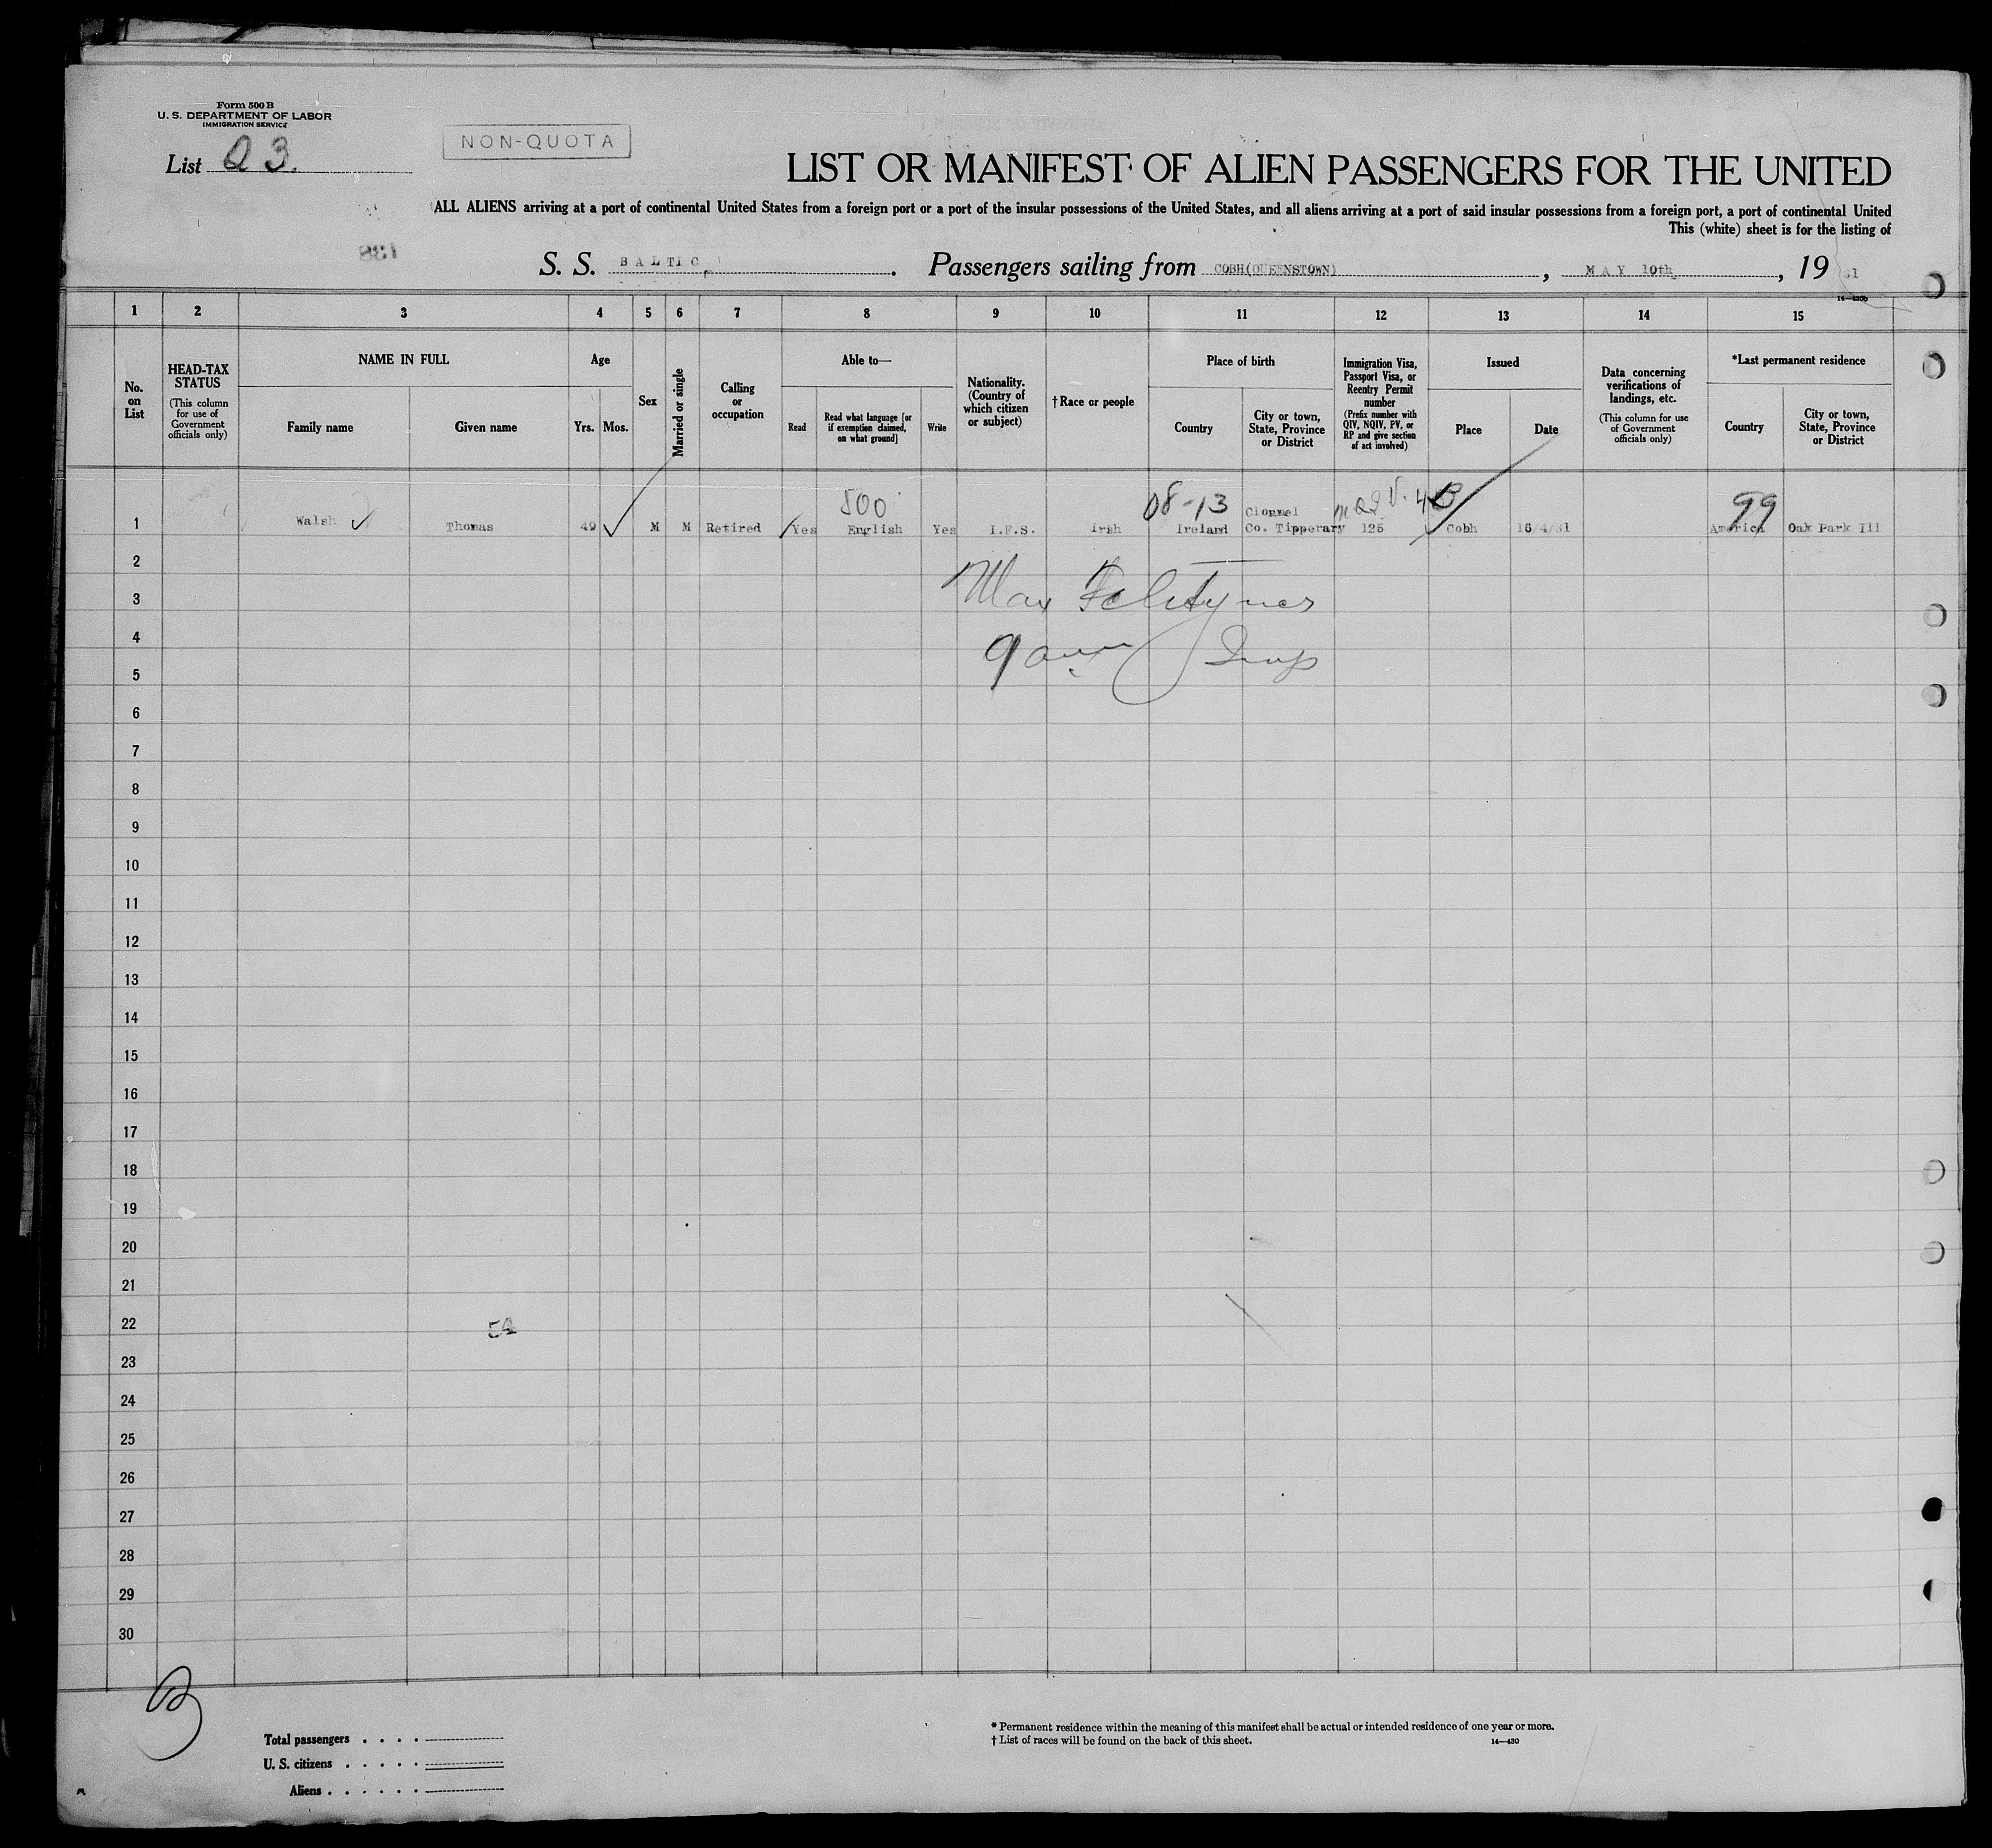 Form 500 B
U. S. DEPARTMENT OF LABOR
IMMIGRATION SERVICE
List Q 3.
NON-QUOTA
LIST OR MANIFEST OF ALIEN PASSENGERS FOR THE UNITED
ALL ALIENS arriving at a port of continental United States from a foreign port or a port of the insular possessions of the United States, and all aliens arriving at a port of said insular possessions from a foreign port, a port of continental United
This (white) sheet is for the listing of
138
S. S. BALTIC, . Passengers sailing from COBH(QUEENSTOWN) , MAY 10th , 19 31
14—430b
1 2 3 4 5 6 7 8 9 10 11 12 13 14 15
No. on List
HEAD-TAX STATUS (This column for use of Government officials only)
NAME IN FULL
Family name
Given name
Age
Yrs. Mos.
Sex
Married or single
Calling or occupation
Able to—
Read
Read what language [or if exemption claimed, on what ground]
Write
Nationality. (Country of which citizen or subject)
†Race or people
Place of birth
Country
City or town, State, Province or District
Immigration Visa, Passport Visa, or Reentry Permit number (Prefix number with QIV, NQIV, PV, or RP and give section of act involved)
Issued
Place
Date
Data concerning verifications of landings, etc. (This column for use of Government officials only)
*Last permanent residence
Country
City or town, State, Province or District
500 08-13 4B 99
1 Walsh Thomas 49 M M Retired Yes English Yes I.F.S. Irsh Ireland Clonmel Co. Tipperary 125 Cobh 16/4/31 America Oak Park Ill
2
3
4
5
6
7
8
9
10
11
12
13
14
15
16
17
18
19
20
21
22
54
23
24
25
26
27
28
29
30
Total passengers
U. S. citizens
Aliens
* Permanent residence within the meaning of this manifest shall be actual or intended residence of one year or more.
† List of races will be found on the back of this sheet.
14—430